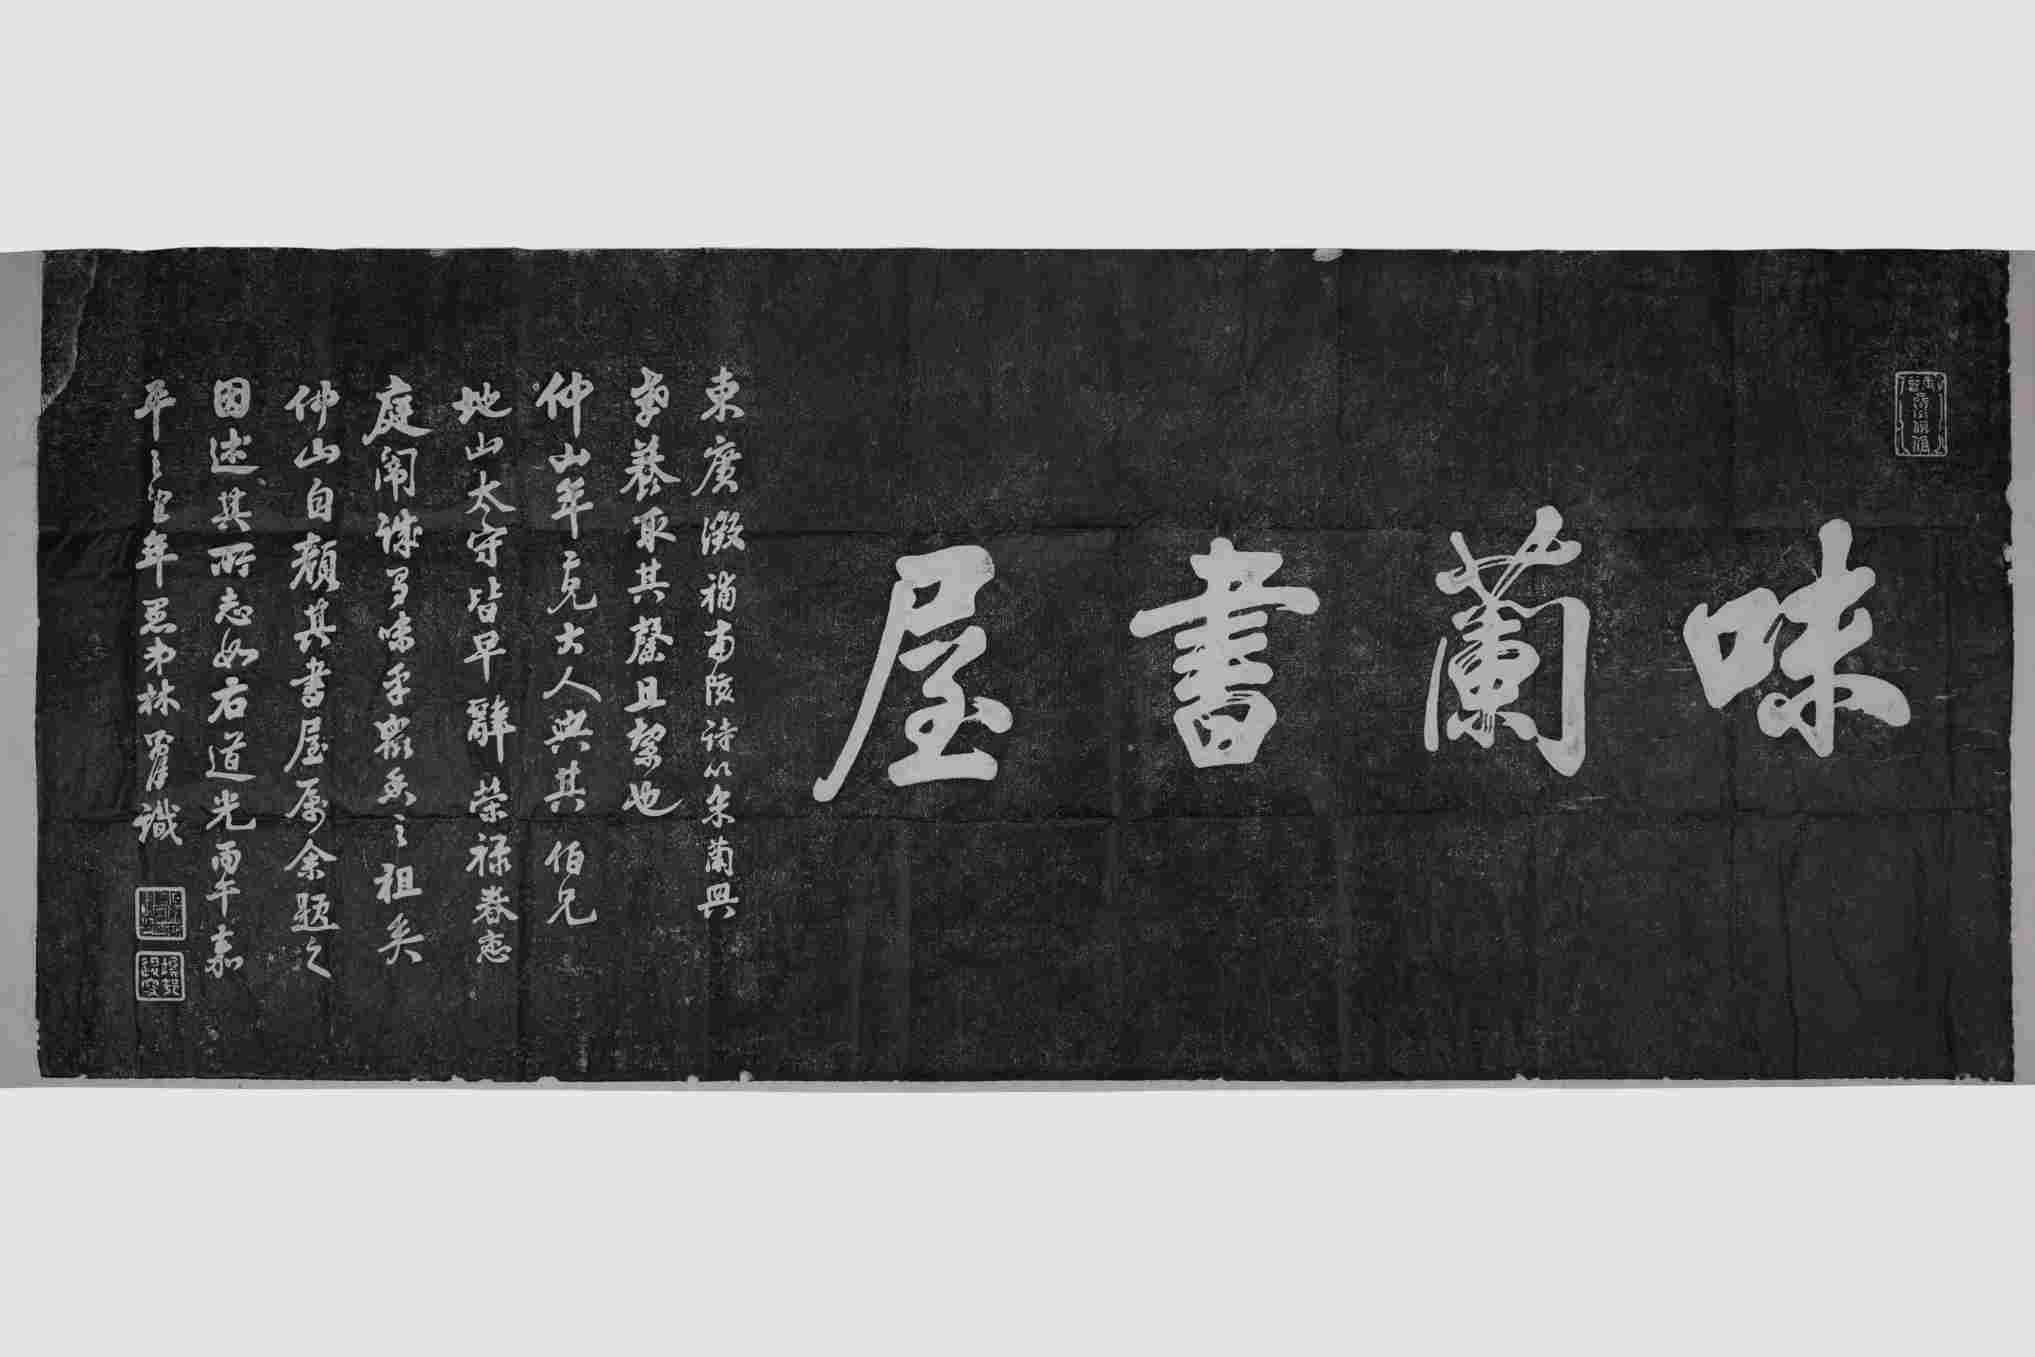 味蘭書屋
東廣微補南陔詩以采蘭興
孝養取其馨且潔也
仲山年克大人與其伯兄
地山太守皆早辭榮祿眷戀
庭闈誠有味乎眾香之祖矣
仲山自顏其書屋屬余題之
因述其所志如右道光丙午嘉
平之望年愚弟林 識